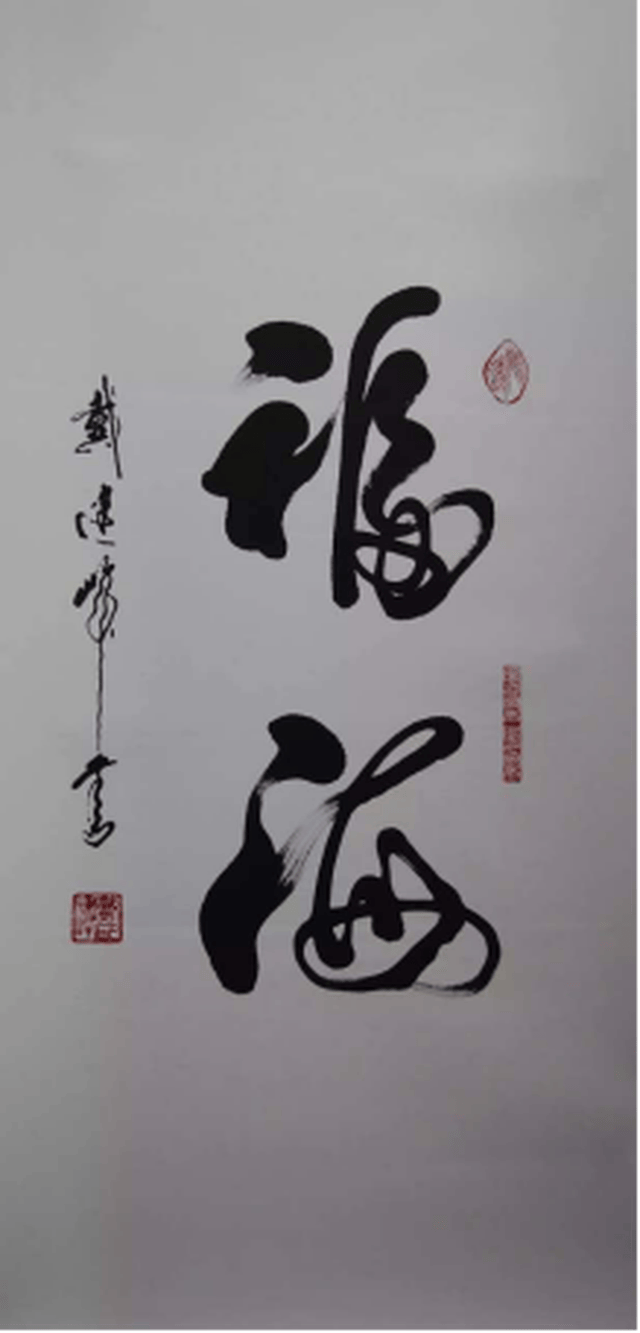 福海
戴建峰書